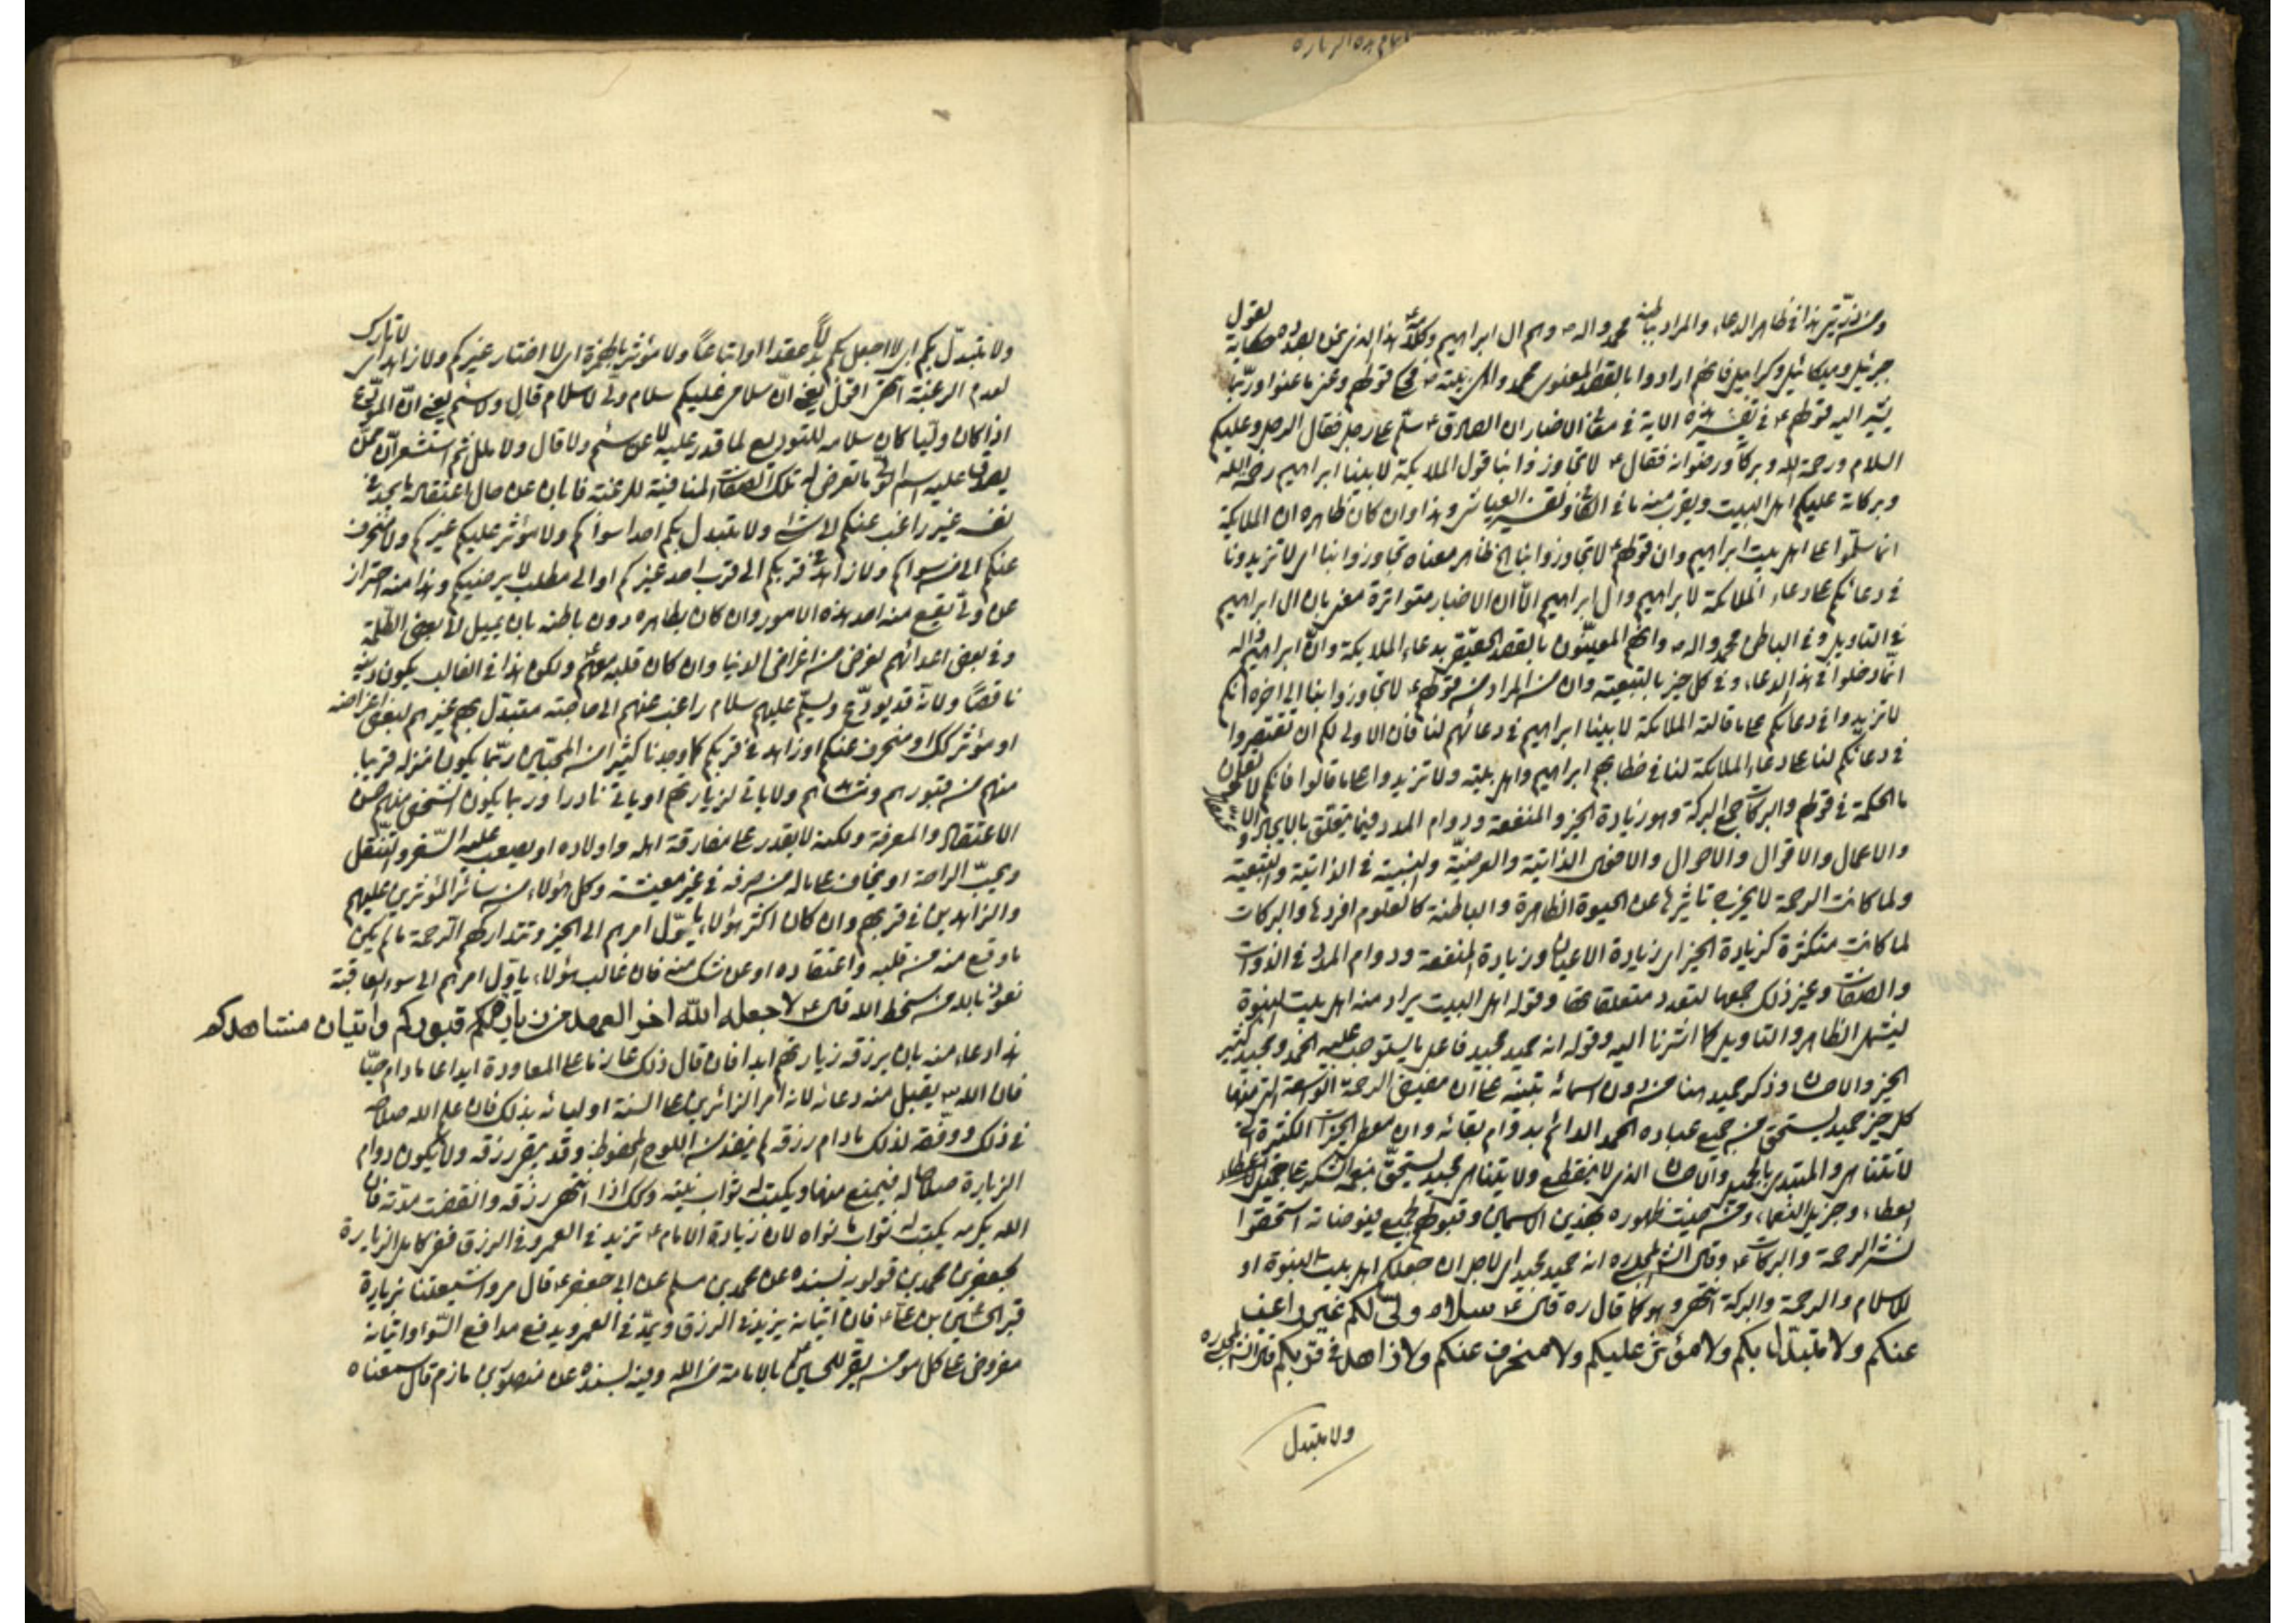 تمام هذه الزيارة
ومن ذريتي هذا في ظاهر الدعاء والمراد بباطنه محمد وآله ص وهم ال ابراهيم وكلامه هذا الذي نحن بصدده حكاية لقول
جبرئيل وميكائيل وكرابيل فانهم ارادوا بالقصد المعنوي محمد واهل بيته ص في قولهم وعنى ما عنوا وربما
يشير اليه قولهم ع في تفسير هذه الاية في مثل الاخبار ان الصادق ع سلم على رجل فقال الرجل وعليكم
السلام ورحمة الله وبركاته ورضوانه فقال ع لا تجاوزوا بنا قول الملائكة لابينا ابراهيم رحمة الله
وبركاته عليكم اهل البيت ويقرب منه ما في الكافي وتفسير العياشي وهذا وان كان ظاهره ان الملائكة
انما سلموا على اهل بيت ابراهيم وان قولهم ع لا تجاوزوا بنا الخ ظاهر معناه تجاوزوا بنا اي لا تزيدونا
في دعائكم على دعاء الملائكة لابراهيم وال ابراهيم الا ان الاخبار متواترة معنى بان ال ابراهيم
في التاويل وفي الباطن محمد واله ص وانهم المعينون بالقصد الحقيقي بدعاء الملائكة وان ابراهيم واله
انما دخلوا في هذا الدعاء وفي كل خير بالتبعية وان من المراد من قولهم ع لا تجاوزوا بنا الى اخره انكم
لا تزيدوا في دعائكم على ما قالته الملائكة لابينا ابراهيم في دعائهم لنا فان الاولى لكم ان تقتصروا
في دعائكم لنا على دعاء الملائكة لنا في خطابهم ابراهيم واهل بيته ولا تزيدوا على ما قالوا فانكم لا تعلمون
ما الحكمة في قولهم والبركات جمع البركة وهو زيادة الخير والمنفعة ودوام المدد فيما يتعلق بالايجاد و
والاعمال والاقوال والاحوال والاقوى الذاتية والعرضية والنسبية في الذاتية والتبعية
ولما كانت الرحمة لا يختص تاثيرها عن الحيوة الظاهرة والباطنة كالعلوم افردها والبركات
لما كانت متكثرة كزيادة الخير اي زيادة الاعيان وزيادة المنفعة ودوام المدد في الذوات
والصفات وغير ذلك جمعها لتعدد متعلقاتها وقوله اهل البيت يراد منه اهل بيت النبوة
ليشمل الظاهر والتاويل كما اشرنا اليه وقوله انه حميد مجيد فاعل ما يستوجب عليه الحمد ومجيد كثير
الخير والاحسان وذكر حميد هنا من دون اسمائه تنبيه على ان مفيض الرحمة الواسعة التي منها
كل خير حميد يستحق من جميع عباده الحمد الدائم بدوام بقائه وان معطي الخيرات الكثيرة التي
لا تتناهى والمبتدئ بالجميل والاحسان الذي لا ينقطع ولا يتناهى مجيد يستحق بنعمه الشكر على جميل
العطاء وجزيل النعماء ومن حيث ظهوره بهذين الاسمين وقبولهم لجميع فيوضاته استحقوا
لنشر الرحمة والبركات ع وقال الشارح المجلسي ره انه حميد مجيد اي لاجل ان جعلكم اهل بيت النبوة او
للسلام والرحمة والبركة انتهى وهو كما قال ره قال ع سلام ولي لكم غير راغب
عنكم ولا متبدل بكم ولا مؤثر عليكم ولا منحرف عنكم ولا زاهد في قربكم قال الشارح المجلسي ره
ولا متبدل
ولا متبدل بكم اي لا اجعل بكم بدلا عقدا او اتباعا ولا مؤثر بالهمزة اي لا اختار غيركم ولا زاهد اي لا تارك
لعدم الرغبة انتهى اقول يعني ان سلامي عليكم سلام ولي لا سلام قال ولا سئم يعني ان المودع
اذا كان وليا كان سلامه للتوديع لما قدر عليه لا عن سئم ولا قال ولا ملل ثم استشعر ان ممن
يصدق عليه اسم الولي ما تعرض له تلك الصفات المنافية للرغبة فابان عن حال اعتقاده ما يجده في
نفسه غير راغب عنكم لا شيء ولا متبدل بكم احدا سواكم ولا مؤثر عليكم غيركم ولا منحرف
عنكم الى من سواكم ولا زاهد في قربكم الى قرب احد غيركم او الى مطلب لا يرضيكم وهذا منه احتراز
عن ولي يقع منه احد هذه الامور وان كان بظاهره دون باطنه بان يميل الى بعض الظلمة
وفي بعض اعدائهم لغرض من اغراض الدنيا وان كان قلبه معهم ولكن هذا في الغالب يكون دينه
ناقصا ولانه قد يودع ويسلم عليهم سلام راغب عنهم الى حاجته متبدل بهم غيرهم لبعض اغراضه
او مؤثر كذلك او منحرف عنكم او زاهد في قربكم كما وجدنا كثيرا من المحبين ربما يكون منزله قريبا
منهم من قبورهم ومشاهدهم ولا ياتي لزيارتهم او ياتي نادرا وربما يكون الشخص منهم حسن
الاعتقاد والمعرفة ولكنه لا يقدر على مفارقة اهله واولاده او يصعب عليه السفر والتنقل
ويحب الراحة او يخاف على ماله من صرفه في غير معيشته وكل هؤلاء من سائر المؤثرين عليهم
والزاهدين في قربهم وان كان اكثر هؤلاء يأول امرهم الى الخير وتتداركهم الرحمة ما لم يكن
ما وقع منه من قلبه واعتقاده او عن شك منه فان غالب هؤلاء يأول امرهم الى سوء العاقبة
نعوذ بالله من سخط الله قال ع لا جعله الله اخر العهد من زيارتكم قبوركم واتيان مشاهدكم
هذا دعاء منه بان يرزقه زيارتهم ابدا فان قال ذلك عازما على المعاودة ابدا على ما دام حيا
فان الله سبحانه يقبل منه دعائه لانه امر الزائرين على السنة اوليائه بذلك فان علم الله صلاحه
في ذلك ووفقه لذلك ما دام رزقه لم ينفد من اللوح المحفوظ وقد يبقى رزقه ولا يكون دوام
الزيارة صلاحا له فيمنع منها ويكتب له ثواب نيته وكذلك اذا انتهى رزقه وانقضت مدته فان
الله يكرمه يكتب له ثواب ما نواه لان زيارة الامام ع تزيد في العمر وفي الرزق ففي كامل الزيارة
لجعفر بن محمد بن قولويه بسنده عن محمد بن مسلم عن ابي جعفر ع قال مروا شيعتنا بزيارة
قبر الحسين بن علي ع فان اتيانه يزيد في الرزق ويمد في العمر ويدفع مدافع السوء واتيانه
مفروض على كل مؤمن يقر للحسين ع بالامامة من الله وفيه بسنده عن منصور بن حازم قال سمعناه